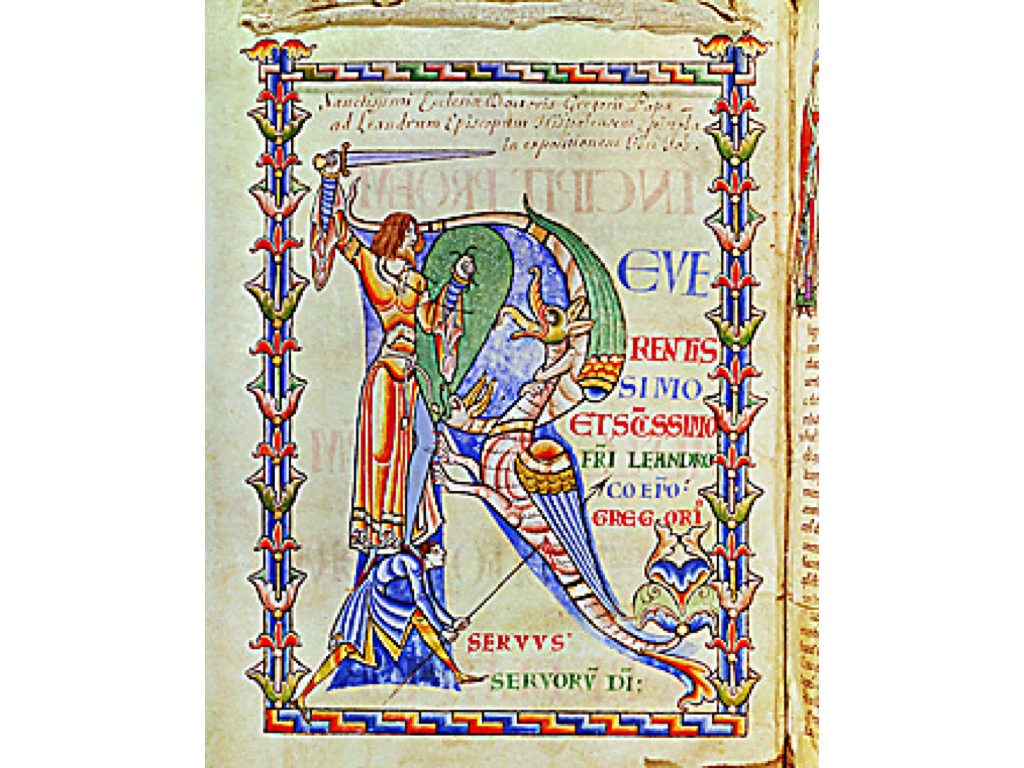 Sanctissimi Ecclesiæ Doctoris Gregorii Papæ
ad Leandrum Episcopum Hispalensem
In expositionem
REVE
RENTIS
SIMO
ET SC̄ISSIMO
FR̄I LEANDRO
COEP̄O:
GREGORI
SERVVS
SERVORV̄ DĪ: